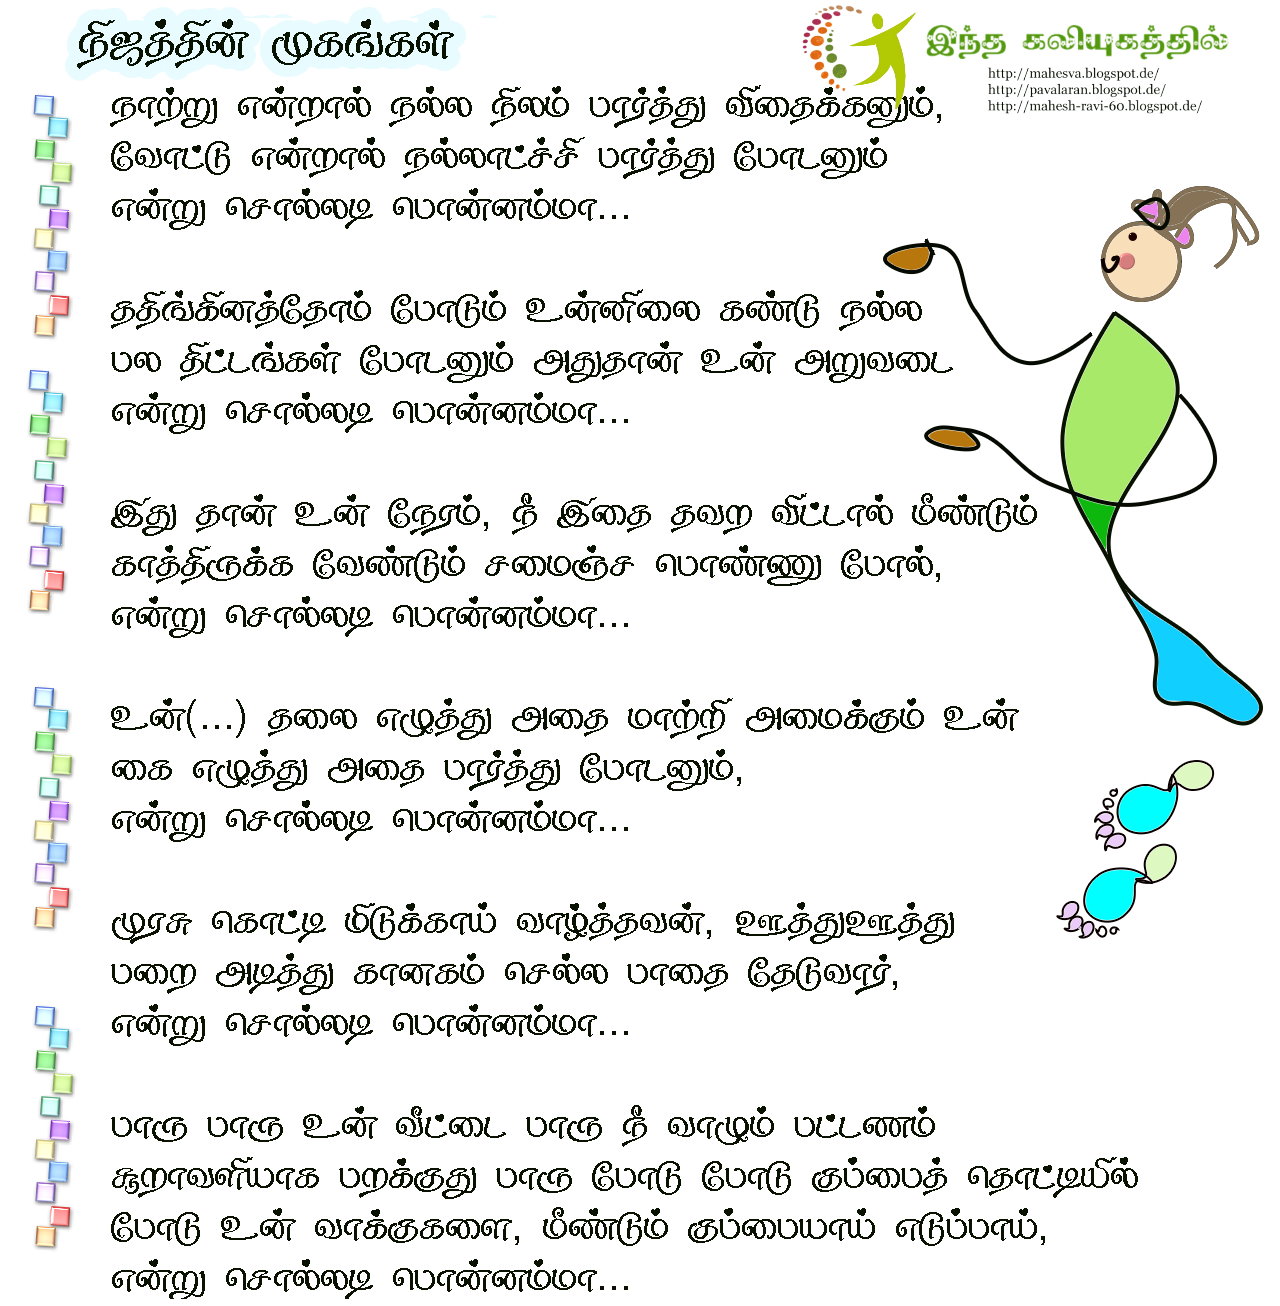 நிஜத்தின் முகங்கள்
இந்த கலியுகத்தில்
http://mahesva.blogspot.de/
http://pavalaran.blogspot.de/
http://mahesh-ravi-60.blogspot.de/
நாற்று என்றால் நல்ல நிலம் பார்த்து விதைக்கனும்,
வோட்டு என்றால் நல்லாட்ச்சி பார்த்து போடனும்
என்று சொல்லடி பொன்னம்மா...
ததிங்கினத்தோம் போடும் உன்னிலை கண்டு நல்ல
பல திட்டங்கள் போடனும் அதுதான் உன் அறுவடை
என்று சொல்லடி பொன்னம்மா...
இது தான் உன் நேரம், நீ இதை தவற விட்டால் மீண்டும்
காத்திருக்க வேண்டும் சமைஞ்ச பொண்ணு போல்,
என்று சொல்லடி பொன்னம்மா...
உன்(...) தலை எழுத்து அதை மாற்றி அமைக்கும் உன்
கை எழுத்து அதை பார்த்து போடனும்,
என்று சொல்லடி பொன்னம்மா...
முரசு கொட்டி மிடுக்காய் வாழ்த்தவன், ஊத்துஊத்து
பறை அடித்து கானகம் செல்ல பாதை தேடுவார்,
என்று சொல்லடி பொன்னம்மா...
பாரு பாரு உன் வீட்டை பாரு நீ வாழும் பட்டணம்
சூறாவளியாக பறக்குது பாரு போடு போடு குப்பைத் தொட்டியில்
போடு உன் வாக்குகளை, மீண்டும் குப்பையாய் எடுப்பாய்,
என்று சொல்லடி பொன்னம்மா...